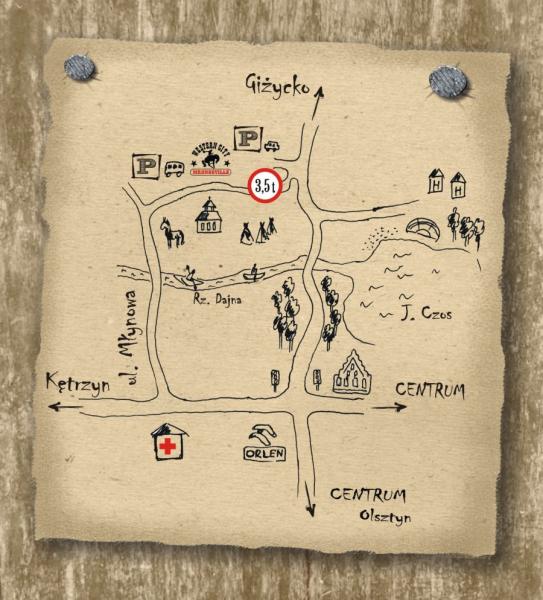 Giżycko
P
WESTERN CITY
MRONGOVILLE
P
3,5t
H
H
Rz. Dajna
ul. Młynowa
J. Czos
Kętrzyn
CENTRUM
ORLEN
CENTRUM
Olsztyn